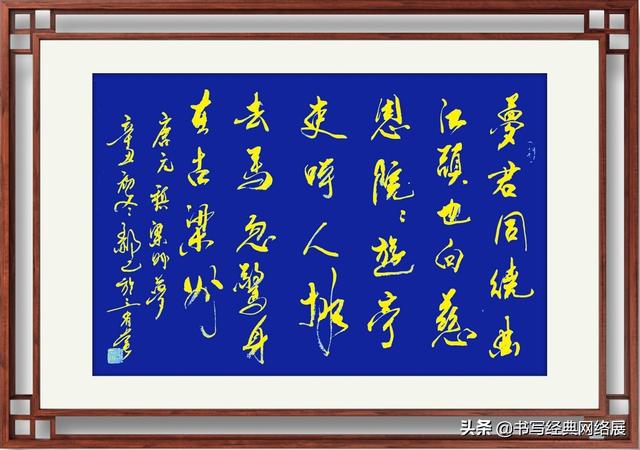 夢君同繞曲
江頭也向慈
恩院〻遊亭
吏呼人排
去馬忽驚身
在古梁州
唐元稹梁州夢
辛丑初冬
头条 @书写经典网络展